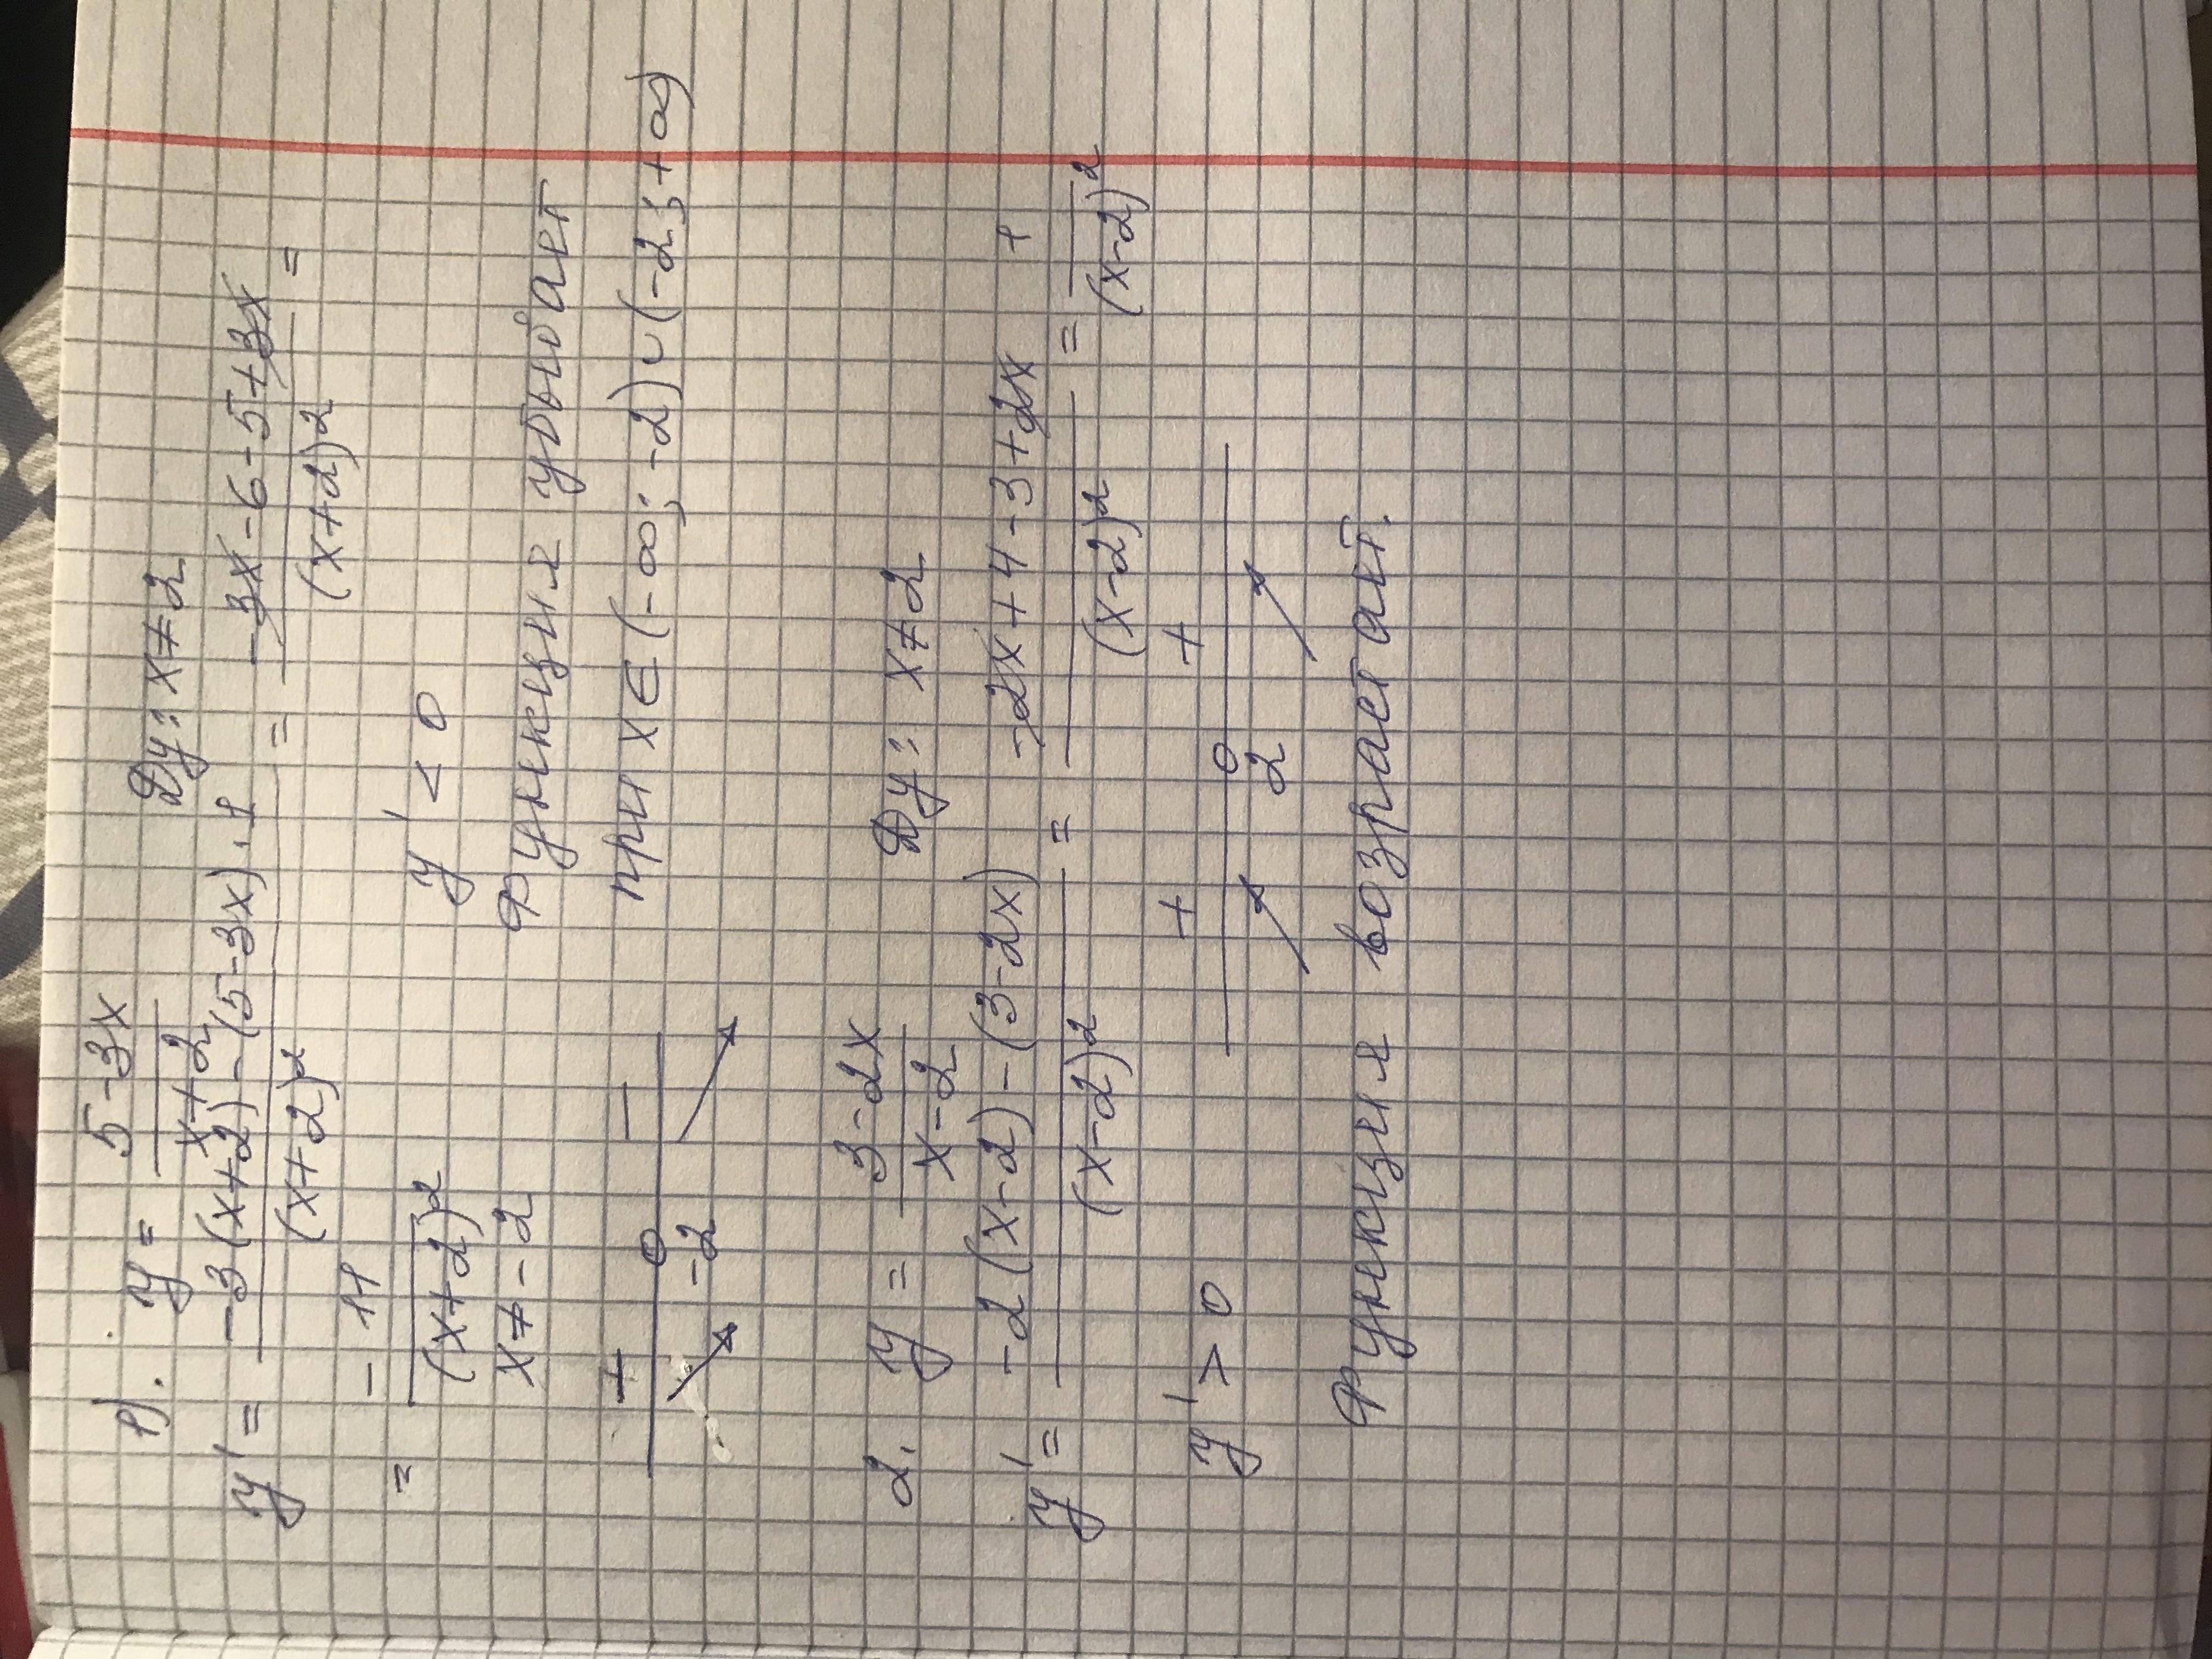 1). y = (5-3x)/(x+2) Dy: x≠2
y' = (-3(x+2)-(5-3x)·1)/(x+2)² = (-3x-6-5+3x)/(x+2)² =
= -11/(x+2)² y' < 0
x≠-2 Функция убывает
+ − при x∈(-∞; -2)∪(-2; +∞)
-2
2. y = (3-2x)/(x-2) Dy: x≠2
y' = (-2(x-2)-(3-2x))/(x-2)² = (-2x+4-3+2x)/(x-2)² = 1/(x-2)²
y' > 0 + +
2
Функция возрастает.